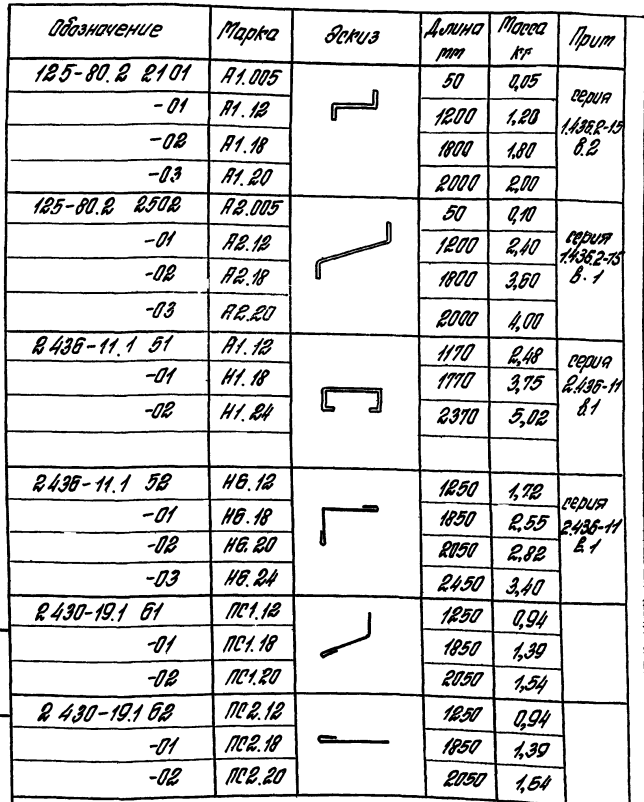 Обозначение Марка Эскиз Длина мм Масса кг Прим
125-80.2 2101 А1.005 50 0,05 серия 1.436.2-15 в.2
-01 А1.12 1200 1,20
-02 А1.18 1800 1,80
-03 А1.20 2000 2,00
125-80.2 2502 А2.005 50 0,10 серия 1.436.2-15 в.1
-01 А2.12 1200 2,40
-02 А2.18 1800 3,60
-03 А2.20 2000 4,00
2 436-11.1 51 А1.12 1170 2,48 серия 2.436-11 в.1
-01 Н1.18 1770 3,75
-02 Н1.24 2370 5,02
2 436-11.1 52 Н6.12 1250 1,72 серия 2.436-11 в.1
-01 Н6.18 1850 2,55
-02 Н6.20 2050 2,82
-03 Н6.24 2450 3,40
2 430-19.1 61 ПС1.12 1250 0,94
-01 ПС1.18 1850 1,39
-02 ПС1.20 2050 1,54
2 430-19.1 62 ПС2.12 1250 0,94
-01 ПС2.18 1850 1,39
-02 ПС2.20 2050 1,54